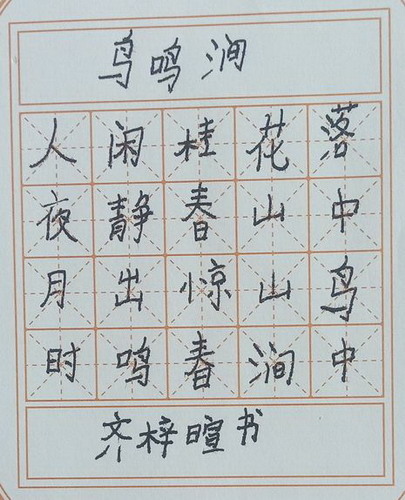 鸟鸣涧
人闲桂花落
夜静春山中
月出惊山鸟
时鸣春涧中
齐梓暄书